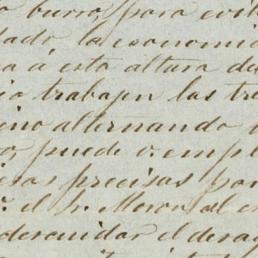 o burro, para evit
dado la economia
a á esta altura de
io trabajen las tr
ino alternando
o puede o. empl
eras precisas por
el Sr. Moron al c
descuidar el desag